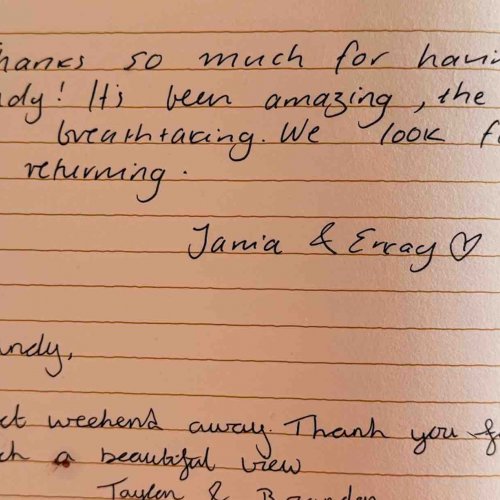 hanks so much for havin
ndy! It's been amazing, the
breathtaking. We look f
returning.
Jania & Eneay ♡
andy,
ect weekend away. Thank you f
ch a beautiful view
Taylen & Brandon